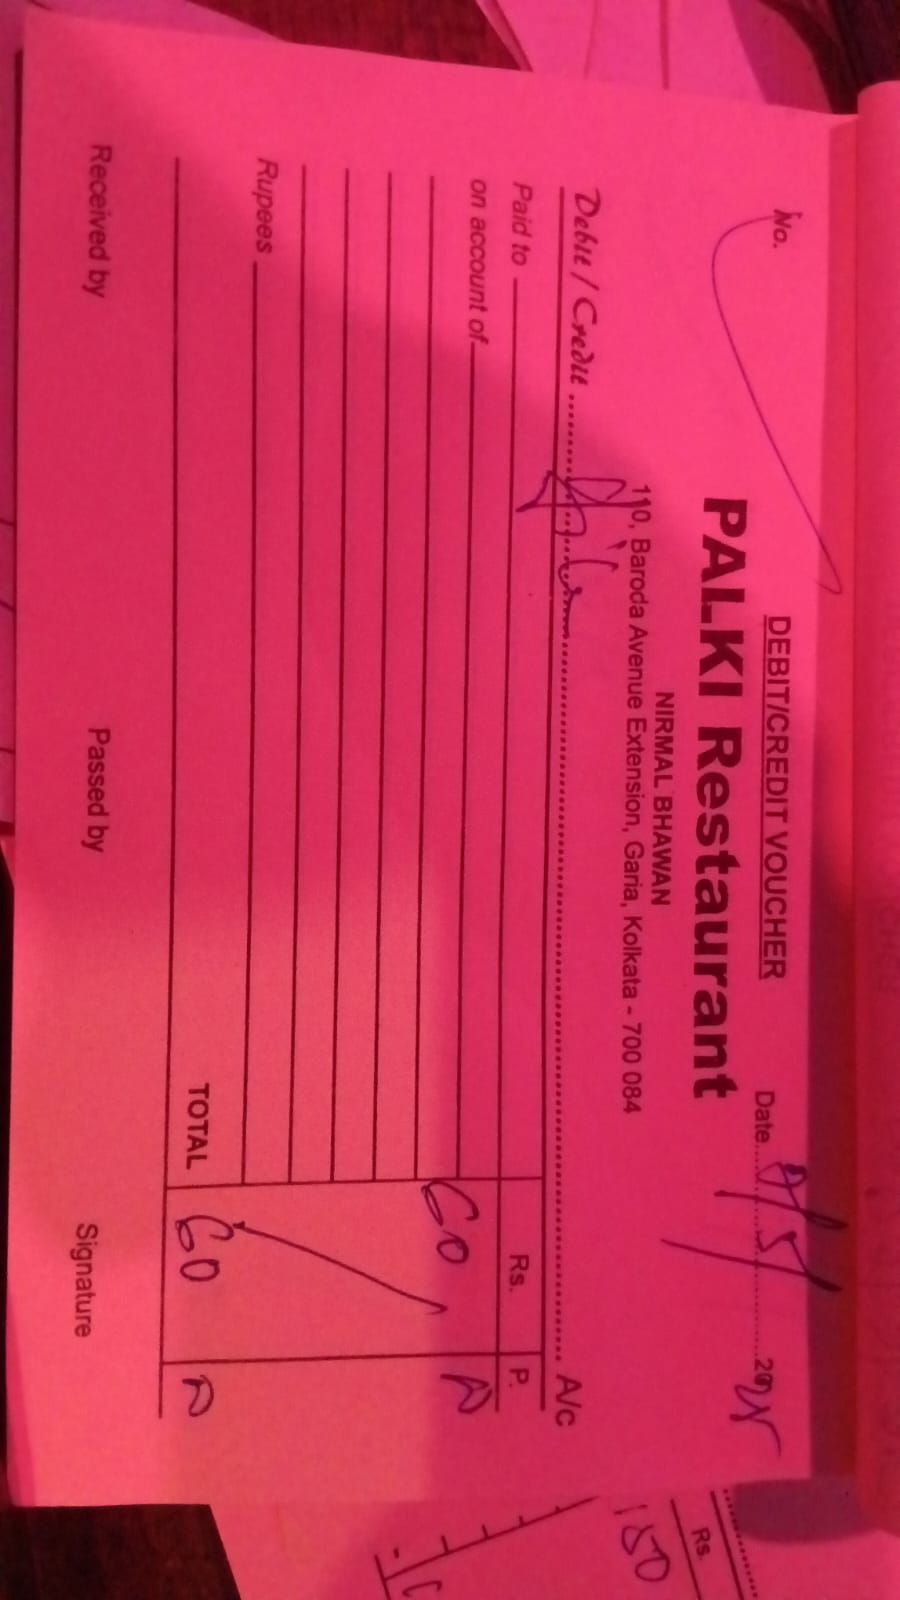 DEBIT/CREDIT VOUCHER
No.
Date.............................20
PALKI Restaurant
NIRMAL BHAWAN
110, Baroda Avenue Extension, Garia, Kolkata - 700 084
Debit / Credit ........................ A/c
Paid to
Rs. P.
on account of
60
Rupees
TOTAL 60
Received by Passed by Signature
Rs.
150